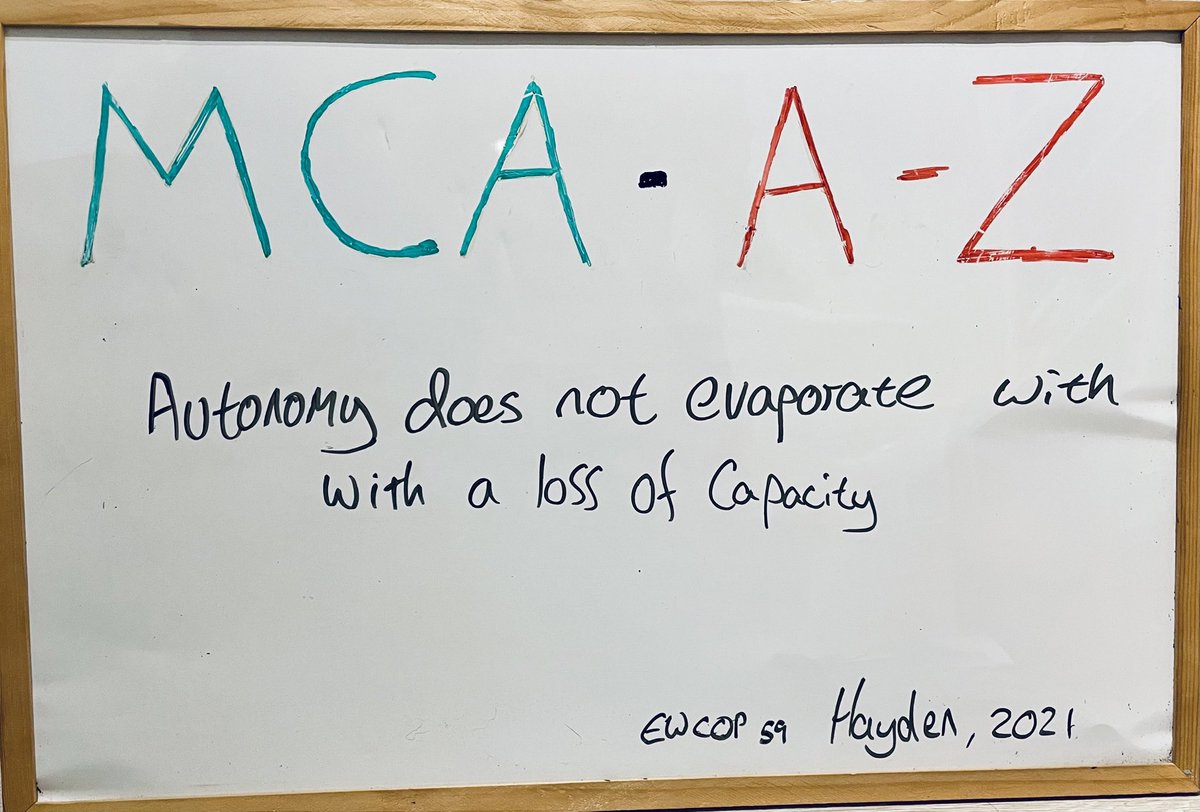 MCA - A - Z
Autonomy does not evaporate with
with a loss of Capacity
EWCOP 59 Hayden, 2021